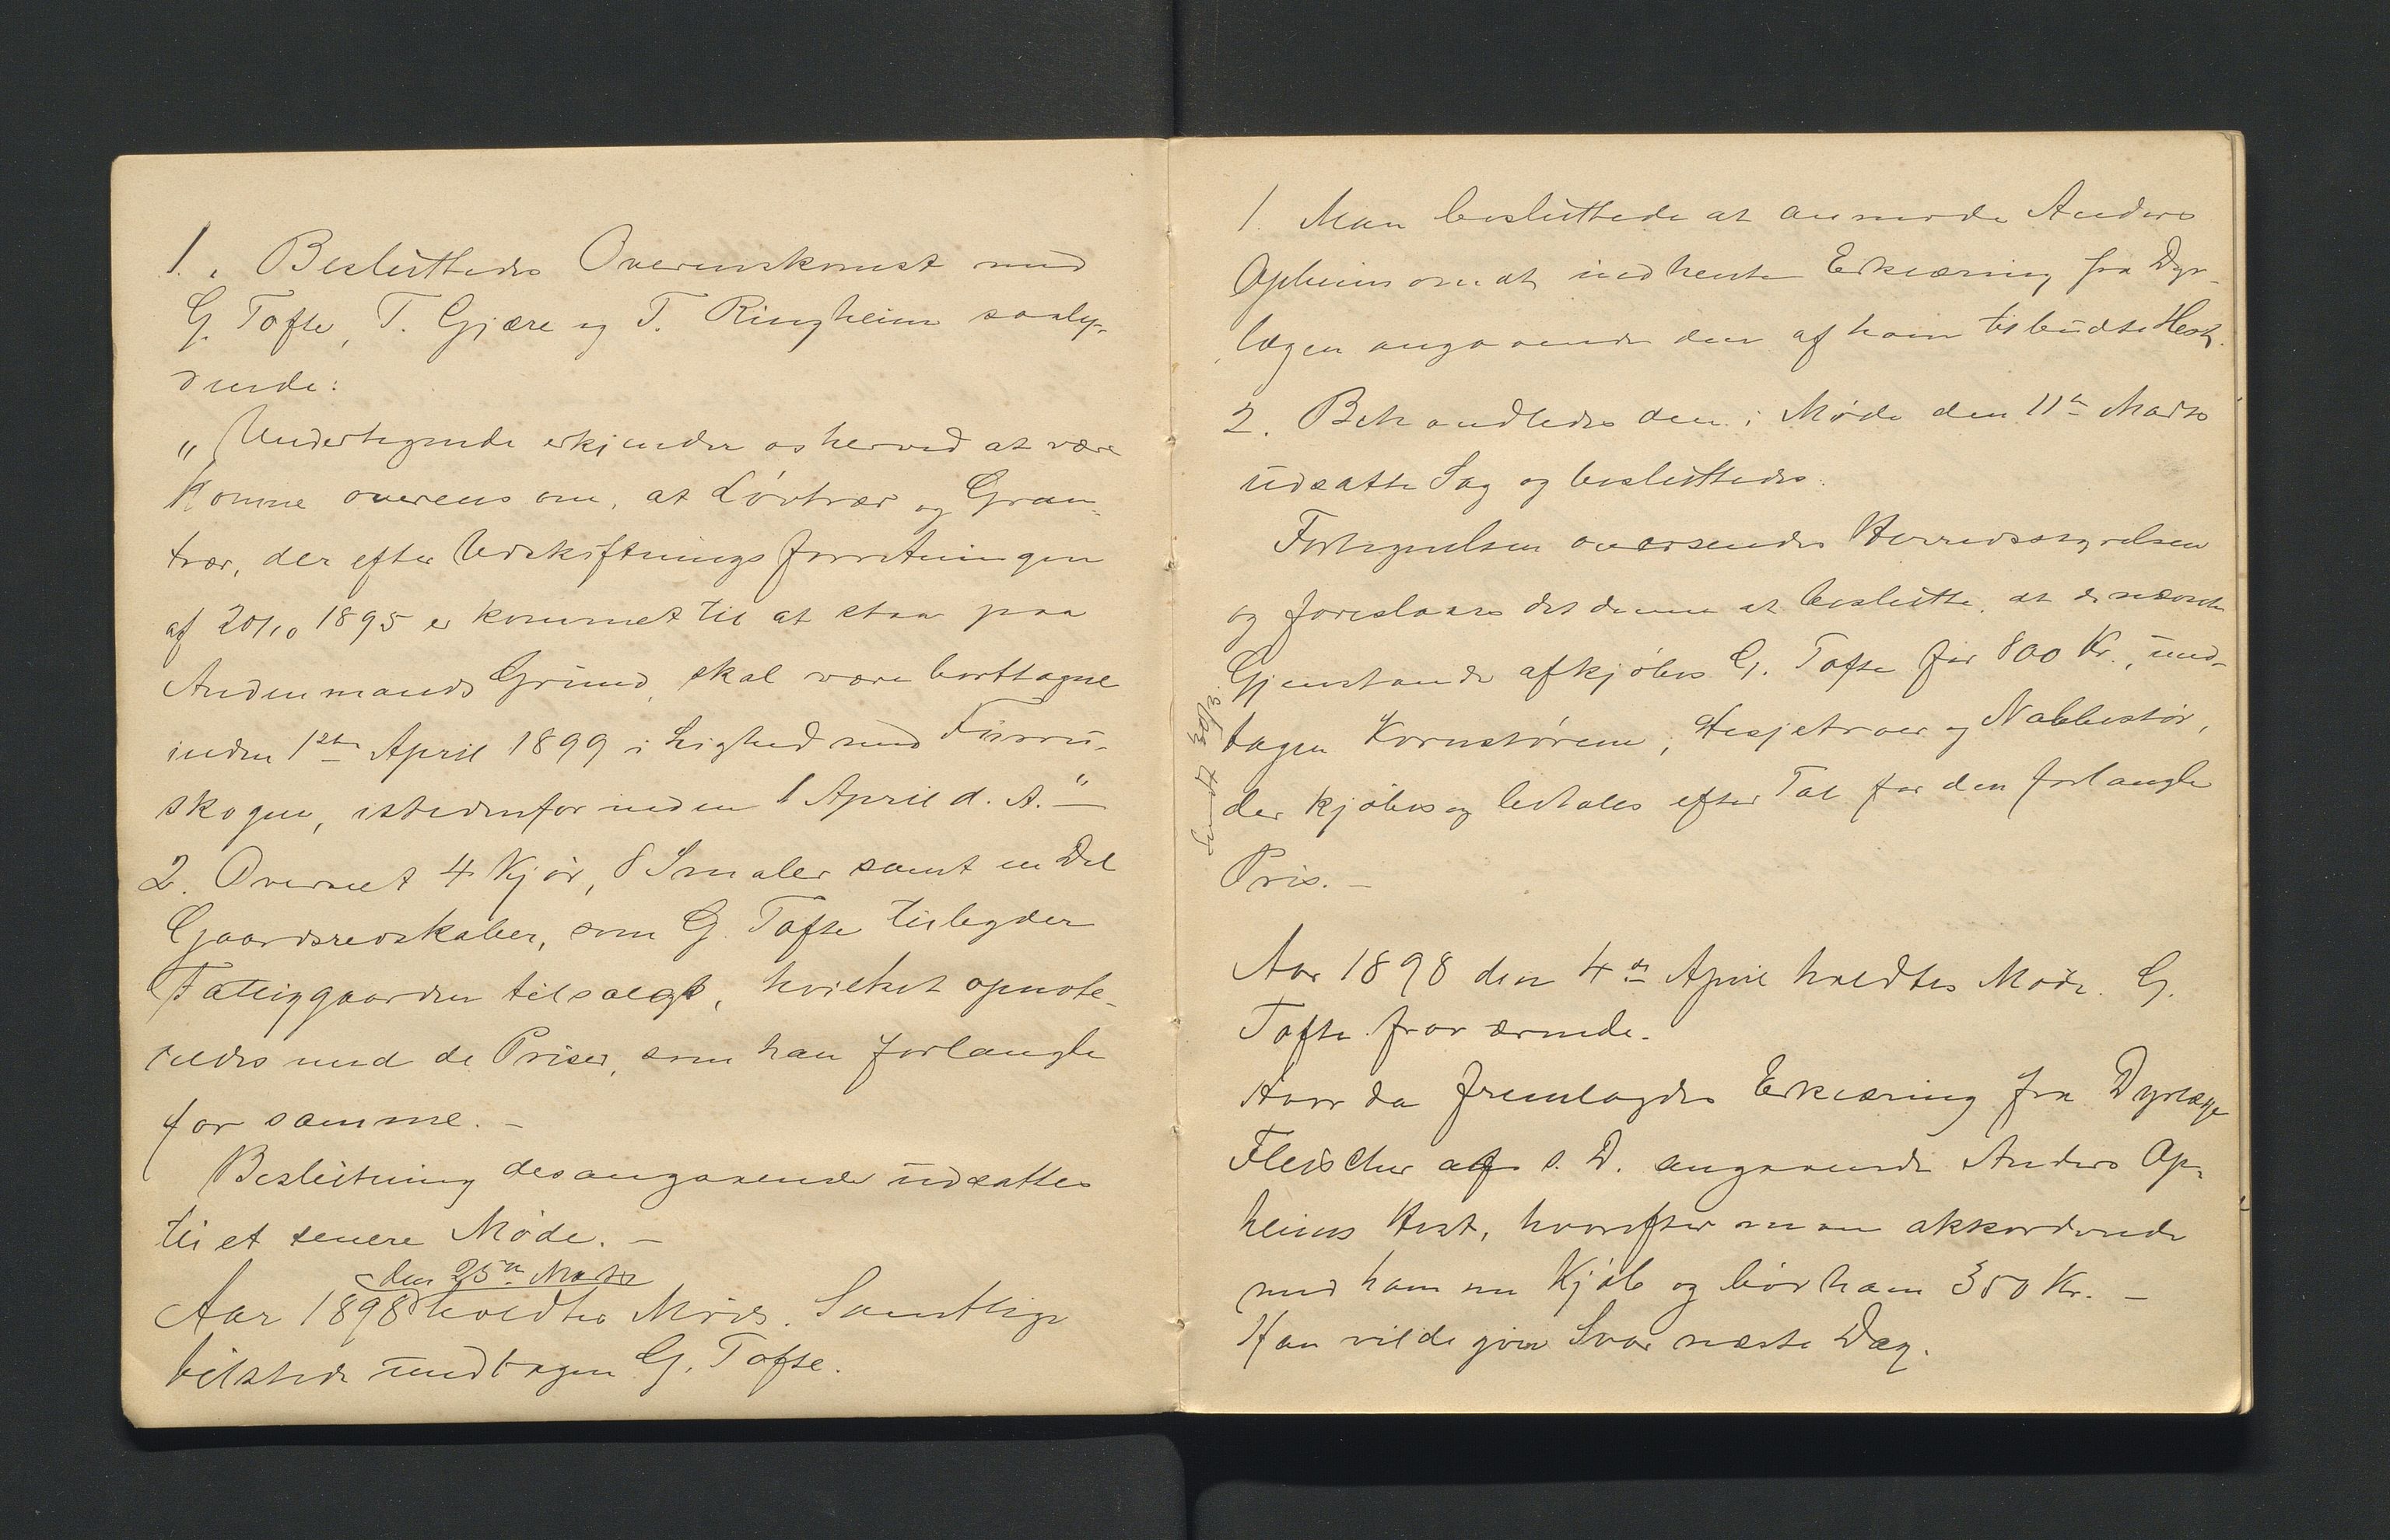 1. Besluttedes Overenskomst med
G. Tofte, T. Gjære og T. Ringheim saaly-
dende:
"Undertegnede erkjender os herved at være
komne overens om, at Løvtrær og Gran-
trær, der efter Udskiftningsforretningen
af 20/10 1895 er kommet til at staa paa
Andenmands Grund, skal være borttagne
inden 1ste April 1899 i Lighed med Furru-
skogen, istedenfor inden 1 April d. A."-
2. Overseet 4 Kjør, 8 Smaler samt en Del
Gaardsredskaber, som G. Tofte tilbyder
Fattiggaarden tilsalgs, hvilket opnote-
redes med de Priser, som han forlangte
for samme. -
Beslutning desangaaende udsattes
til et senere Møde. -
den 25de Marts
Aar 1898 holdtes Møde. Samtlige
tilstede undtagen G. Tofte.
1. Man besluttede at anmode Anders
Opheim om at indhente Erklæring fra Dyr-
lægen angaaende den af ham tilbudte Hest.
2. Behandledes den i Møde den 11te Marts
udsatte Sag og besluttedes:
Fortegnelsen oversendes Herredsstyrelsen
og foreslaaes det denne at beslutte, at de nævnte
Gjenstande afkjøbes G. Tofte for 800 Kr., und-
tagen Kornstørene, Hesjetræer og Nabbestør,
der kjøbes og betales efter Tal for den forlangte
Pris. -
Aar 1898 den 4de April holdtes Møde. G.
Tofte fraværende.
Hvor da fremlagdes Erklæring fra Dyrlæge
Fleischer af s. D. angaaende Anders Op-
heims Hest, hvorefter man akkorderede
med ham om Kjøb og bød ham 350 Kr. -
Han vilde give Svar næste Dag.